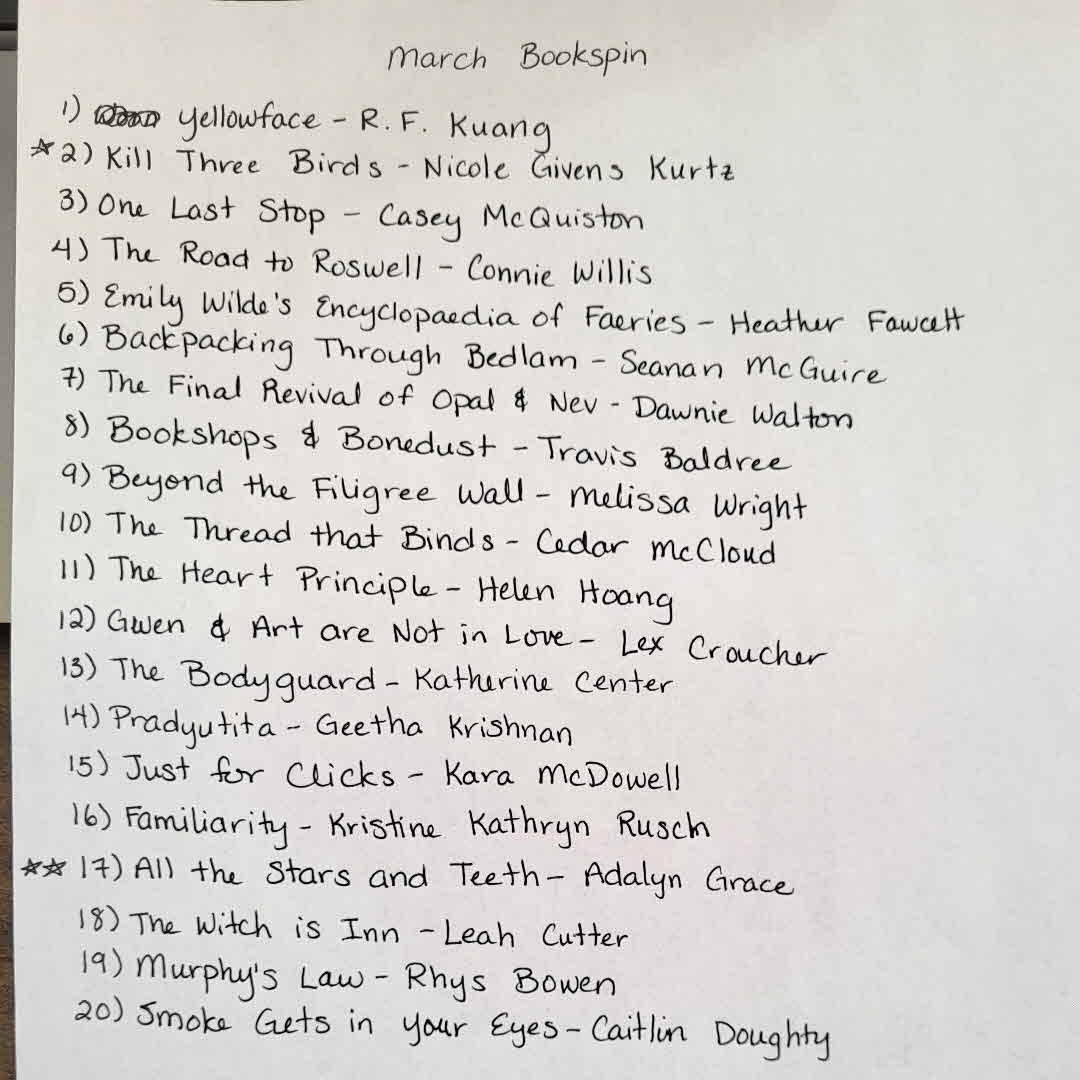 March Bookspin
1) Yellowface - R. F. Kuang
☆ 2) Kill Three Birds - Nicole Givens Kurtz
3) One Last Stop - Casey McQuiston
4) The Road to Roswell - Connie Willis
5) Emily Wilde's Encyclopaedia of Faeries - Heather Fawcett
6) Backpacking Through Bedlam - Seanan McGuire
7) The Final Revival of Opal & Nev - Dawnie Walton
8) Bookshops & Bonedust - Travis Baldree
9) Beyond the Filigree Wall - Melissa Wright
10) The Thread that Binds - Cedar McCloud
11) The Heart Principle - Helen Hoang
12) Gwen & Art are Not in Love - Lex Croucher
13) The Bodyguard - Katherine Center
14) Pradyutita - Geetha Krishnan
15) Just for Clicks - Kara McDowell
16) Familiarity - Kristine Kathryn Rusch
☆☆ 17) All the Stars and Teeth - Adalyn Grace
18) The Witch is Inn - Leah Cutter
19) Murphy's Law - Rhys Bowen
20) Smoke Gets in Your Eyes - Caitlin Doughty